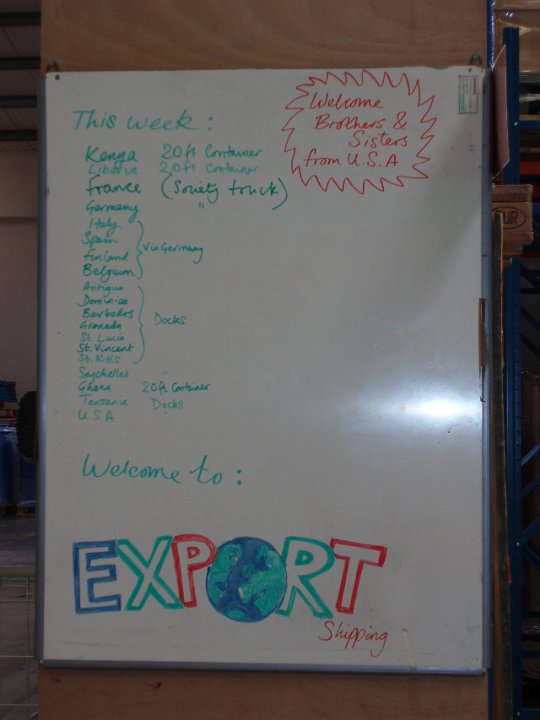 Welcome
Brothers &
Sisters
from U.S.A
This week:
Kenya 20ft Container
Liberia 20ft Container
France (Society truck)
Germany "
Italy
Spain
Finland
Belgium
via Germany
Antigua
Dominica
Barbados
Grenada
St. Lucia
St. Vincent
St. Kitts
Docks
Seychelles "
Ghana 20ft Container
Tanzania Docks
U.S.A
Welcome to:
EXPORT
Shipping